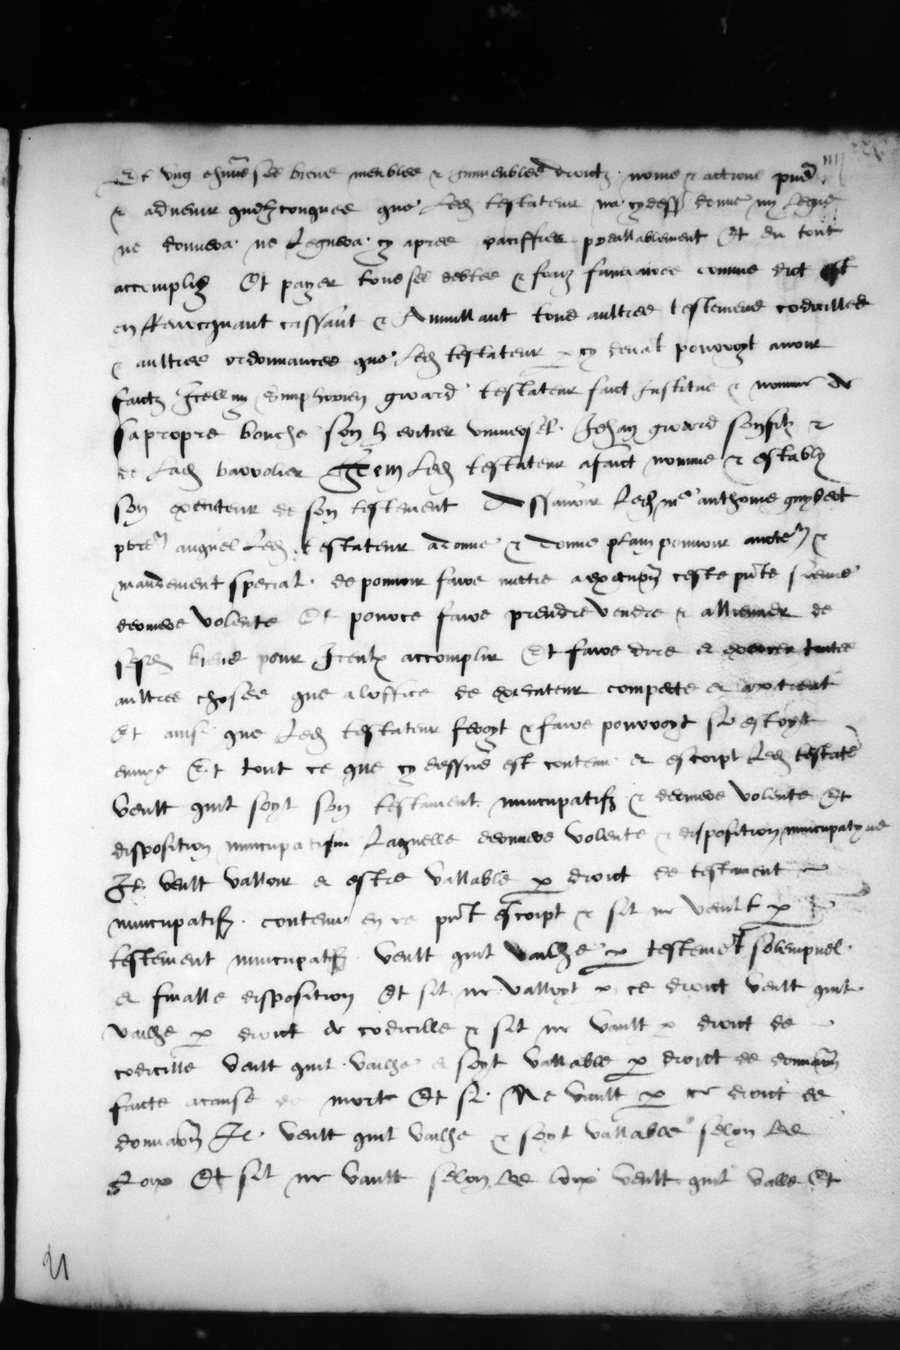 Et ung chūn ses biens meubles & immeubles droictz noms & actions pn̄s
& advenir quelzconques que led testateur na cydess donne ny legue
ne donnera ne leguera cy apres parffres preallablement Et du tout
accomplis Et payer tous ses debtes & fraiz funeraires comme dict est
en Revocquant cassant & Annullant tous aultres testemens codicilles
& aultres ordonnances que led testateur p cy devāt pouvoyt avoir
faictz Icelluy Simphorien girard testateur faict Institue & nomme de
sa propre bouche son heritier universel Jehan girard son filz &
de lad barrolier Item led testateur a faict nomme & estably
son executeur de son testement Assavoir led mᵉ anthoine guybert
pbre auquel led testateur a donne & donne plain pouvoir aucte &
mandement special de pouvoir faire metre a execupōn ceste pn̄te sienne
derniere volente Et pouvoir faire prendre vendre & alliener de
sesd biens pour Iceulx accomplir Et faire dire et exercer toutes
aultres choses que a loffice de executeur compete et
Et ainsi que led testateur feroyt & faire pouvoyt sil estoyt
en vye Et tout ce que cy dessus est contenu & escript led testatr
veult quil soyt son testament nuncupatifz & derniere volente Et
disposition nuncupatifve laquelle derniere volente & disposition nuncupatyve
Il veult valloir et estre vallable p droict de testament
nuncupatifz contenu en ce pn̄t escript & sil ne veult p
testement nuncupatifz veult quil vailhe p testemēt solempnel
et finalle disposition Et sil ne valloyt p ce droict veult quil
vailhe p droict de codicille & sil ne vault p droict de
codicille veult quil vailhe & soyt vallable p droict de donnaōn
faicte a cause de mort Et si Ne vault p ce droict de
donnaōn Il veult quil vailhe & soyt vallable selon les
loix Et sil ne vault selon les loix veult quil valle Et